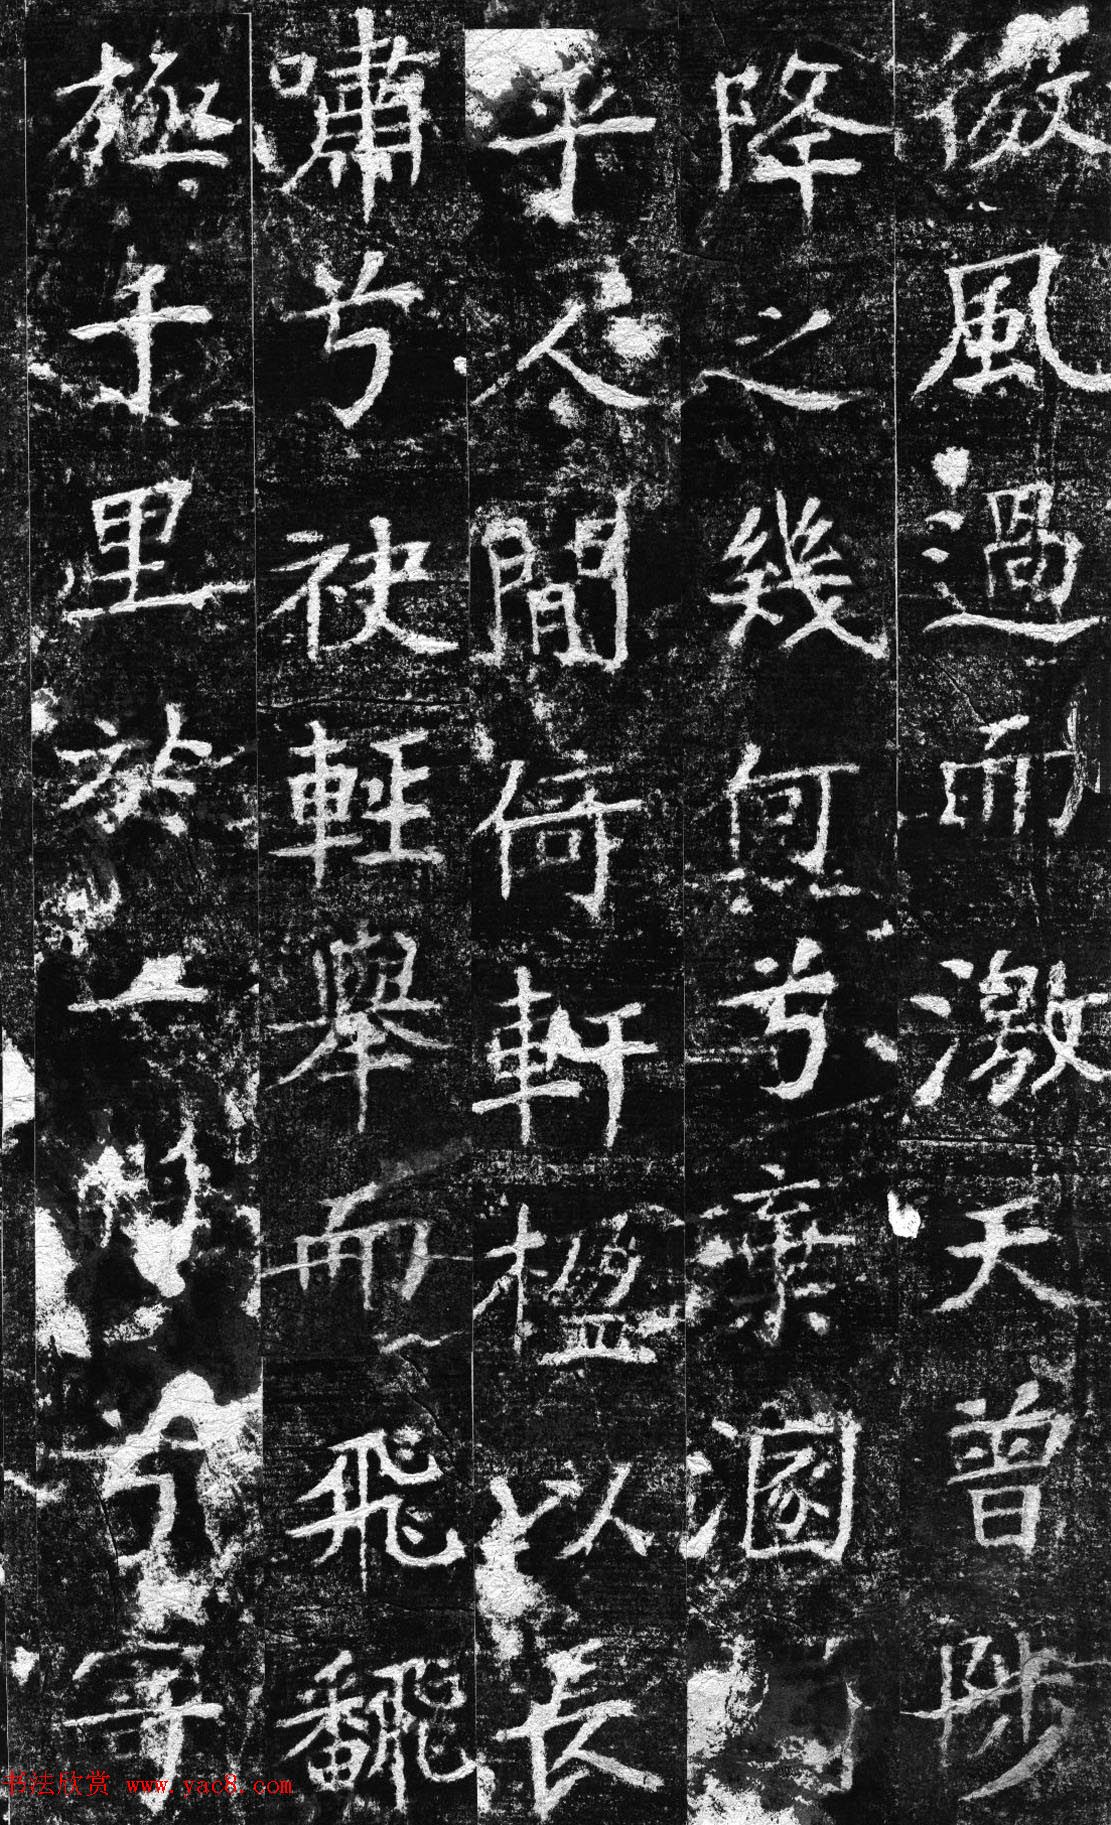 風過而激天曾陟
降之幾何兮棄溷
乎人間倚軒楹以長
嘯兮袂輕舉而飛飜
極千里於一兮寄
书法欣赏 www.yac8.com